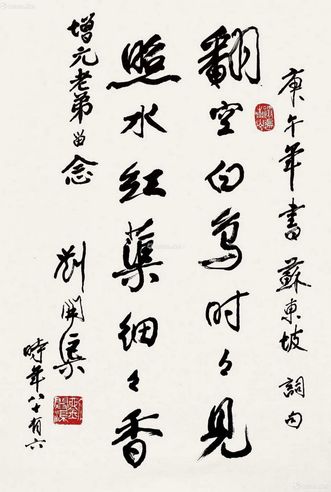 庚午年書蘇東坡詞句
翻空白鳥时々見
照水紅蕖細々香
增元老弟留念
劉開渠
時年八十有六